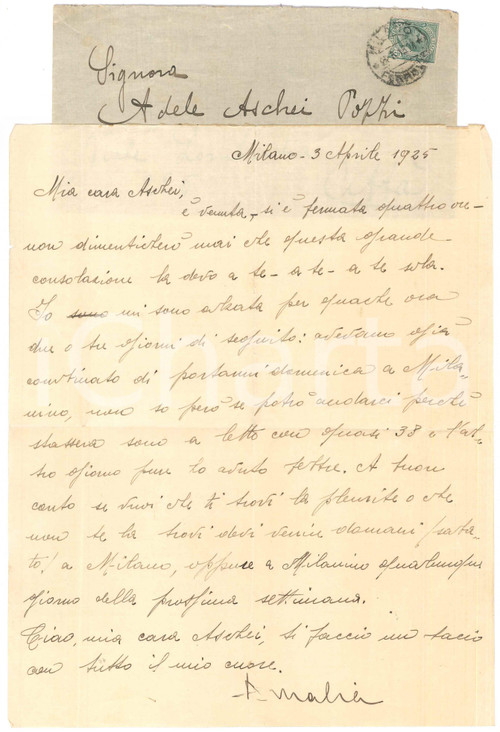 Signora
Adele Aschei Pozzi
Milano - 3 Aprile 1925
Mia cara Aschei,
è venuta - si è fermata quattro ore -
non dimenticherò mai che questa grande
consolazione la devo a te - a te - a te sola.
Io sono mi sono alzata per qualche ora
due o tre giorni di seguito: avevamo già
combinato di portarmi domenica a Mila-
nino, non so però se potrò andarci perchè
stassera sono a letto con quasi 38 e l'al-
tro giorno pure ho avuto febbre. A buon
conto se vuoi che ti trovi la pleurite o che
non te la trovi devi venire domani (saba-
to) a Milano, oppure a Milanino qualunque
giorno della prossima settimana.
Ciao, mia cara Aschei, ti faccio un bacio
con tutto il mio cuore.
Amalia